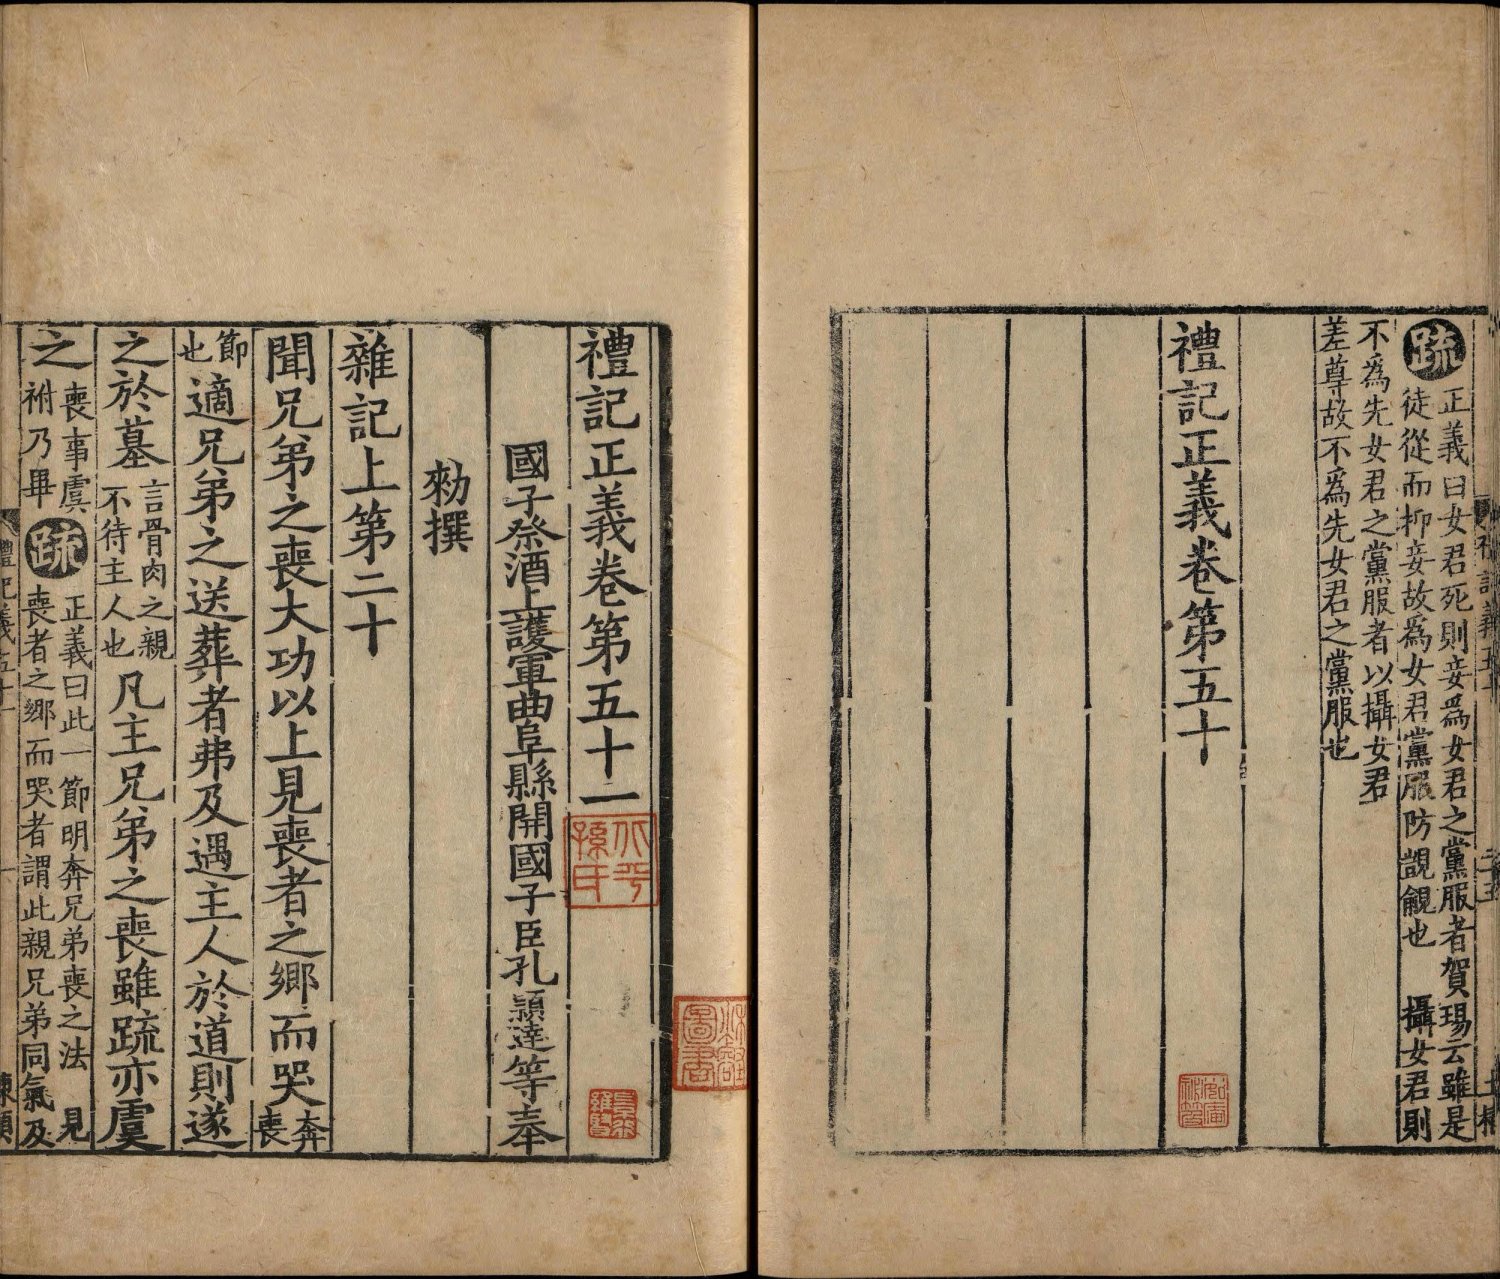 疏正義曰女君死則妾爲女君之黨服者賀瑒云雖是
徒從而抑妾故爲女君黨服防覬覦也 攝女君則
不爲先女君之黨服者以攝女君
差尊故不爲先女君之黨服也
禮記正義卷第五十
禮記正義卷第五十一
國子祭酒上護軍曲阜縣開國子臣孔穎達等奉
勑撰
雜記上第二十
聞兄弟之喪大功以上見喪者之鄉而哭奔喪
節也適兄弟之送葬者弗及遇主人於道則遂
之於墓言骨肉之親不待主人也凡主兄弟之喪雖疏亦虞
之喪事虞祔乃畢疏正義曰此一節明奔兄弟喪之法 見
喪者之鄉而哭者謂此親兄弟同氣及
禮記義五十一
一
孫氏